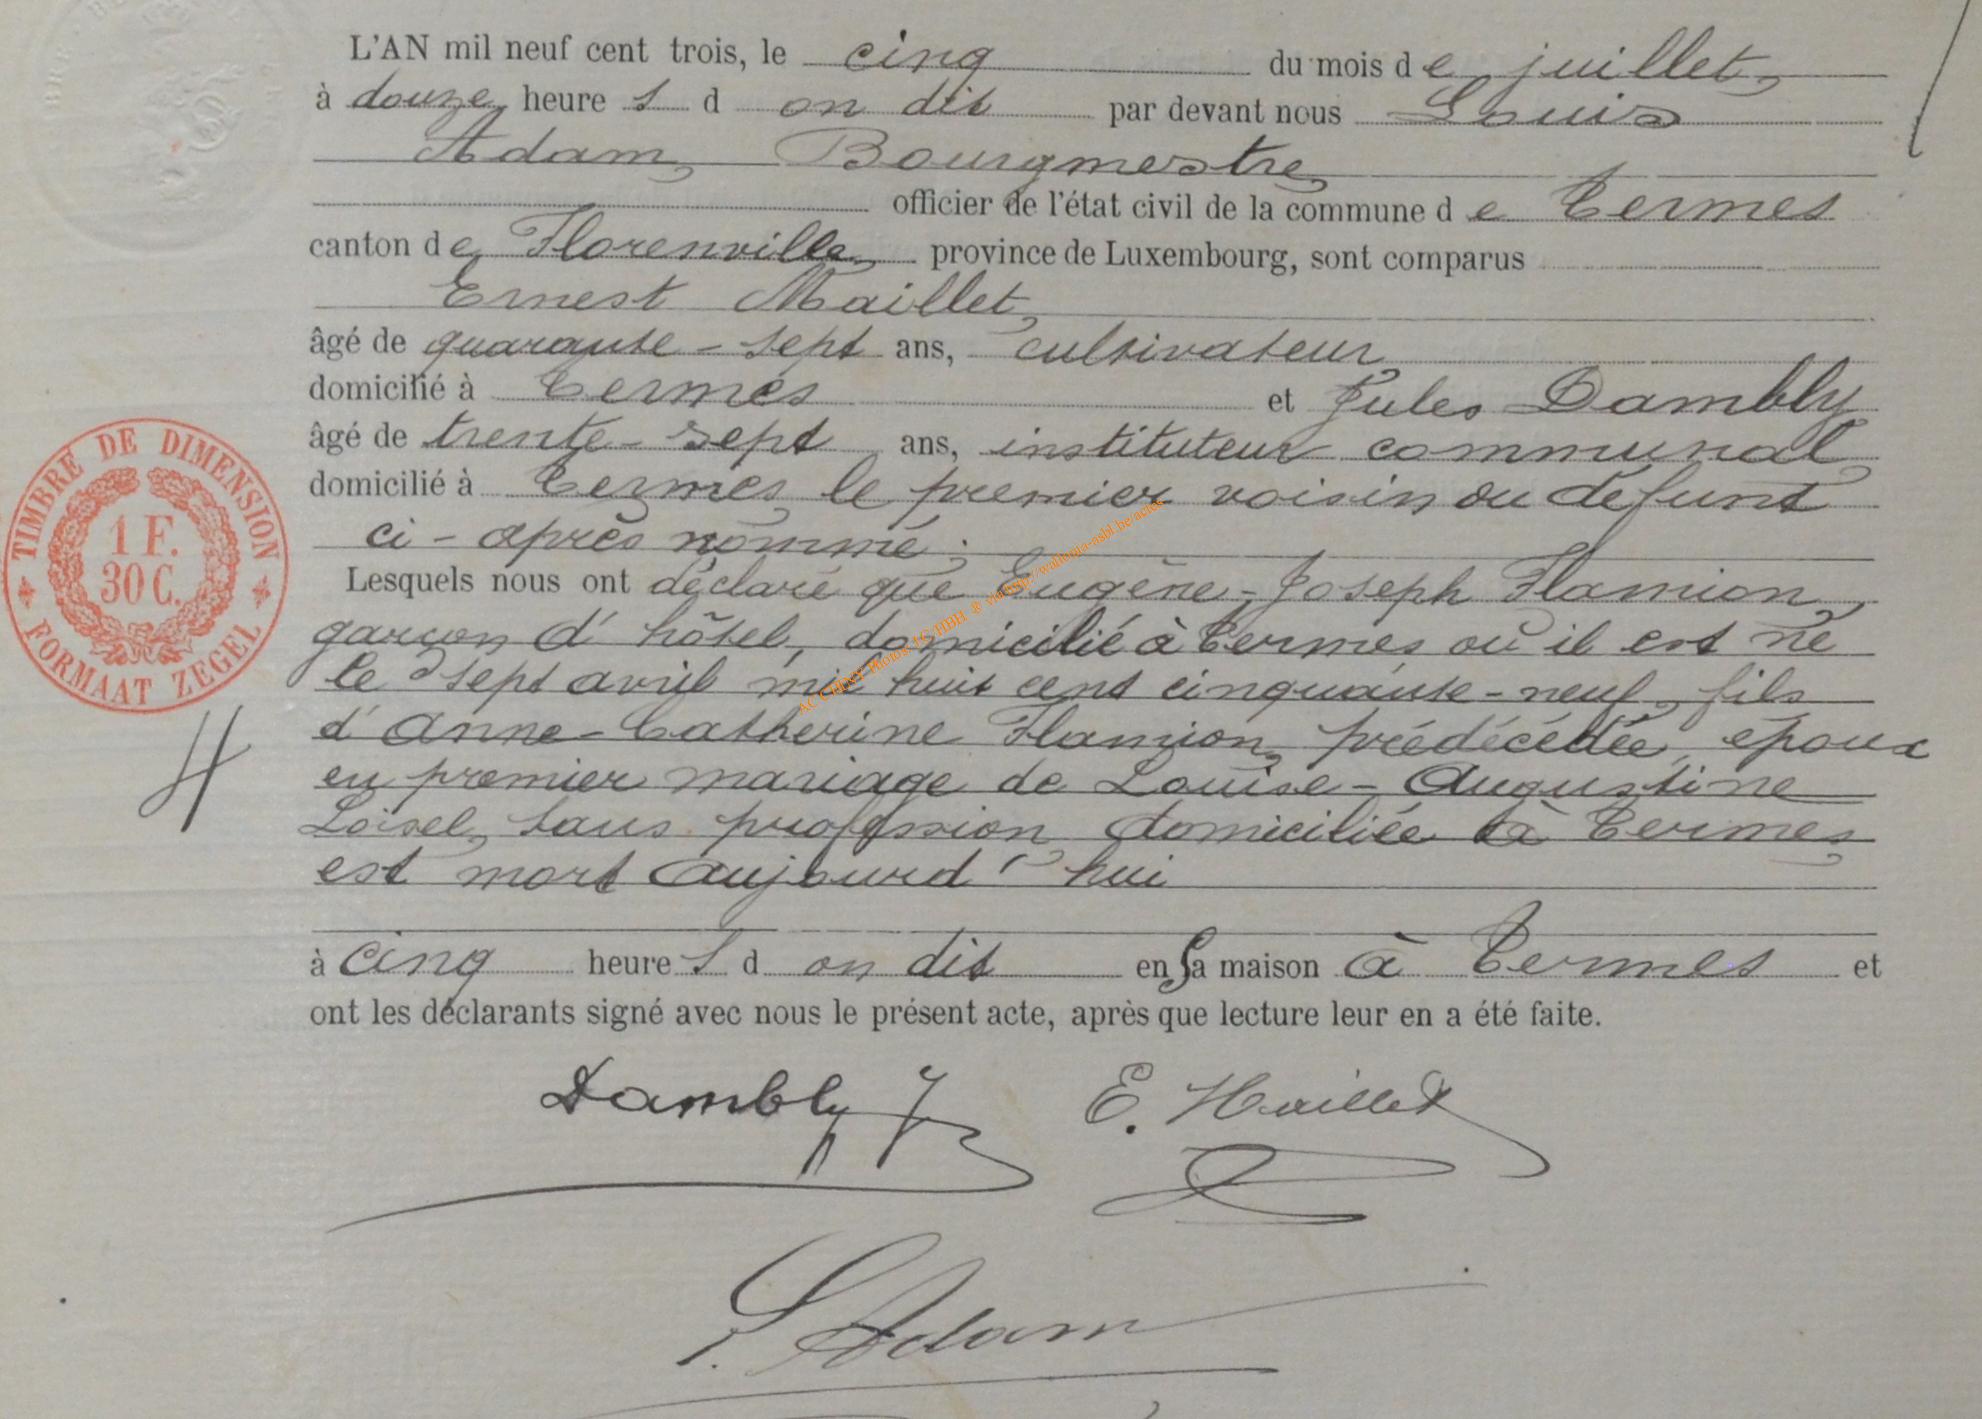 L'AN mil neuf cent trois, le cinq du mois de juillet,
à douze heures d on dit par devant nous Louis
Adam, Bourgmestre,
officier de l'état civil de la commune de Termes
canton de Florenville, province de Luxembourg, sont comparus
Ernest Maillet,
âgé de quarante-sept ans, cultivateur,
domicilié à Termes et Jules Dambly
âgé de trente-sept ans, instituteur communal,
domicilié à Termes, le premier voisin du défunt
ci-après nommé;
Lesquels nous ont déclaré que Eugène-Joseph Flamion,
garçon d'hôtel, domicilié à Termes, où il est né
le sept avril mil huit cent cinquante-neuf, fils
d'Anne-Catherine Flamion, prédécédée, époux
en premier mariage de Louise-Augustine
Loisel, sans profession, domiciliée à Termes,
est mort aujourd'hui
à cinq heures d on dit en sa maison à Termes et
ont les déclarants signé avec nous le présent acte, après que lecture leur en a été faite.
Dambly J
E. Maillet
L. Adam
TIMBRE DE DIMENSION
1 F.
30 C.
FORMAAT ZEGEL